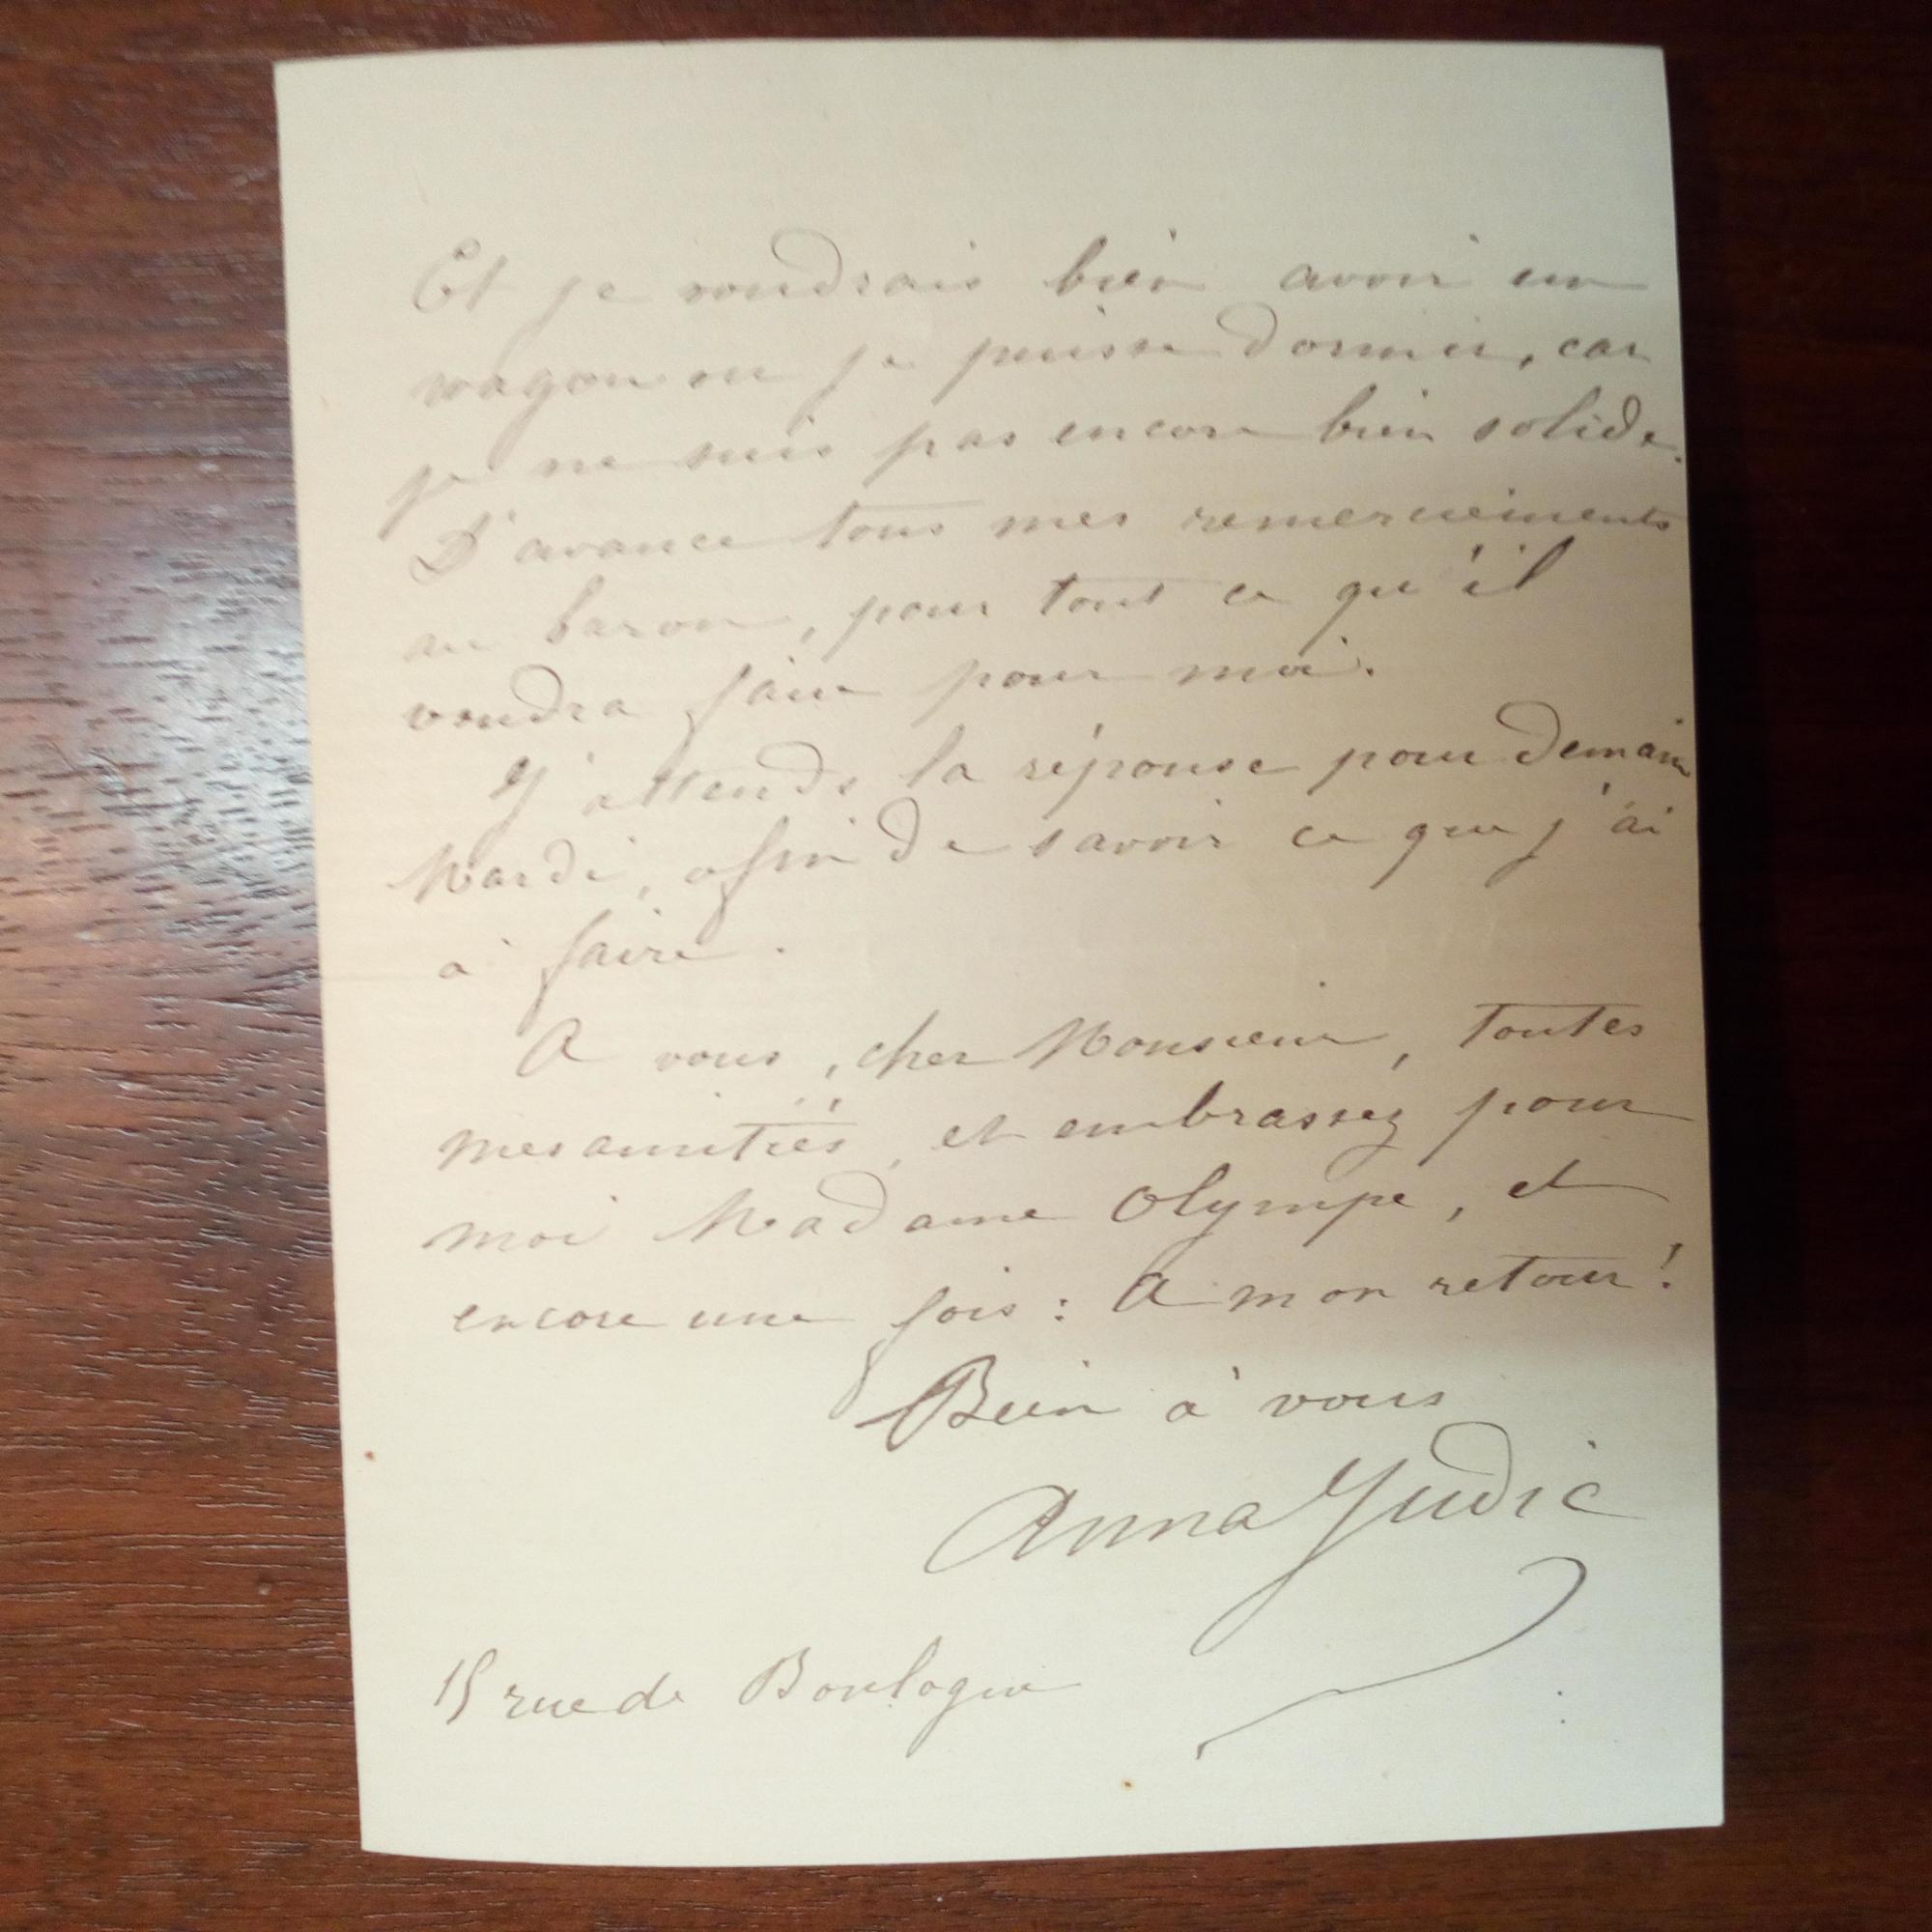 Et je voudrais bien avoir un
wagon ou je puisse dormir, car
je ne suis pas encore bien solide.
D'avance tous mes remerciements
au baron, pour tout ce qu'il
voudra faire pour moi.
J'attends la réponse pour demain
Mardi, afin de savoir ce que j'ai
à faire.
A vous, cher Monsieur, toutes
mes amitiés, et embrassez pour
moi Madame Olympe, et
encore une fois : A mon retour !
Bien à vous
Anna Judic
15 rue de Boulogne